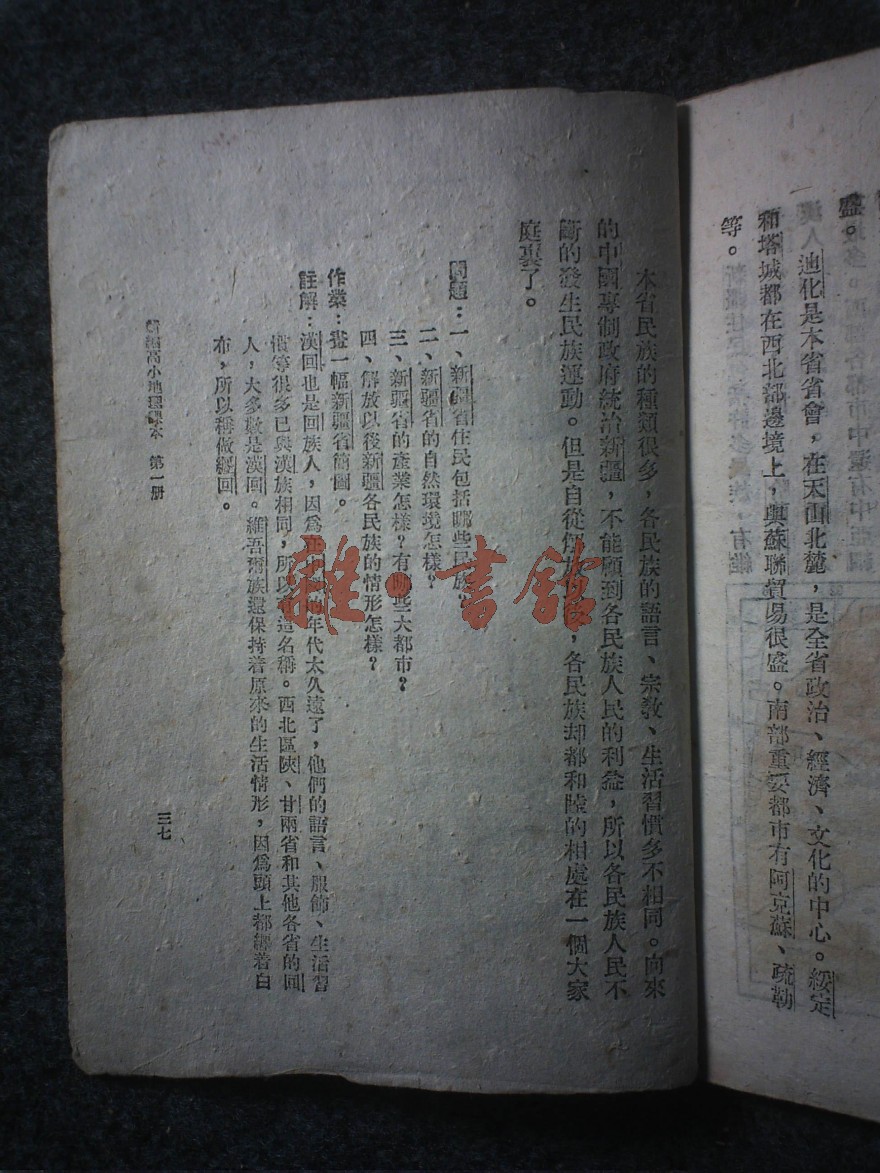 盛。
迪化是本省省會，在天山北麓，是全省政治、經濟、文化的中心。綏定
和塔城都在西北部邊境上，與蘇聯貿易很盛。南部重要都市有阿克蘇、疏勒
等。
本省民族的種類很多，各民族的語言、宗教、生活習慣多不相同。向來
的中國專制政府統治新疆，不能顧到各民族人民的利益，所以各民族人民不
斷的發生民族運動。但是自從解放，各民族却都和陸的相處在一個大家
庭裏了。
問題：一、新疆省住民包括哪些民族？
二、新疆省的自然環境怎樣？
三、新疆省的產業怎樣？有哪些大都市？
四、解放以後新疆各民族的情形怎樣？
作業：畫一幅新疆省簡圖。
註解：漢回也是回族人，因爲年代太久遠了，他們的語言、服飾、生活習
慣等很多已與漢族相同，所以有這名稱。西北區陝、甘兩省和其他各省的回
人，大多數是漢回。維吾爾族還保持着原來的生活情形，因爲頭上都纏着白
布，所以稱做纏回。
新編高小地理課本 第一册
三七
雜·書館